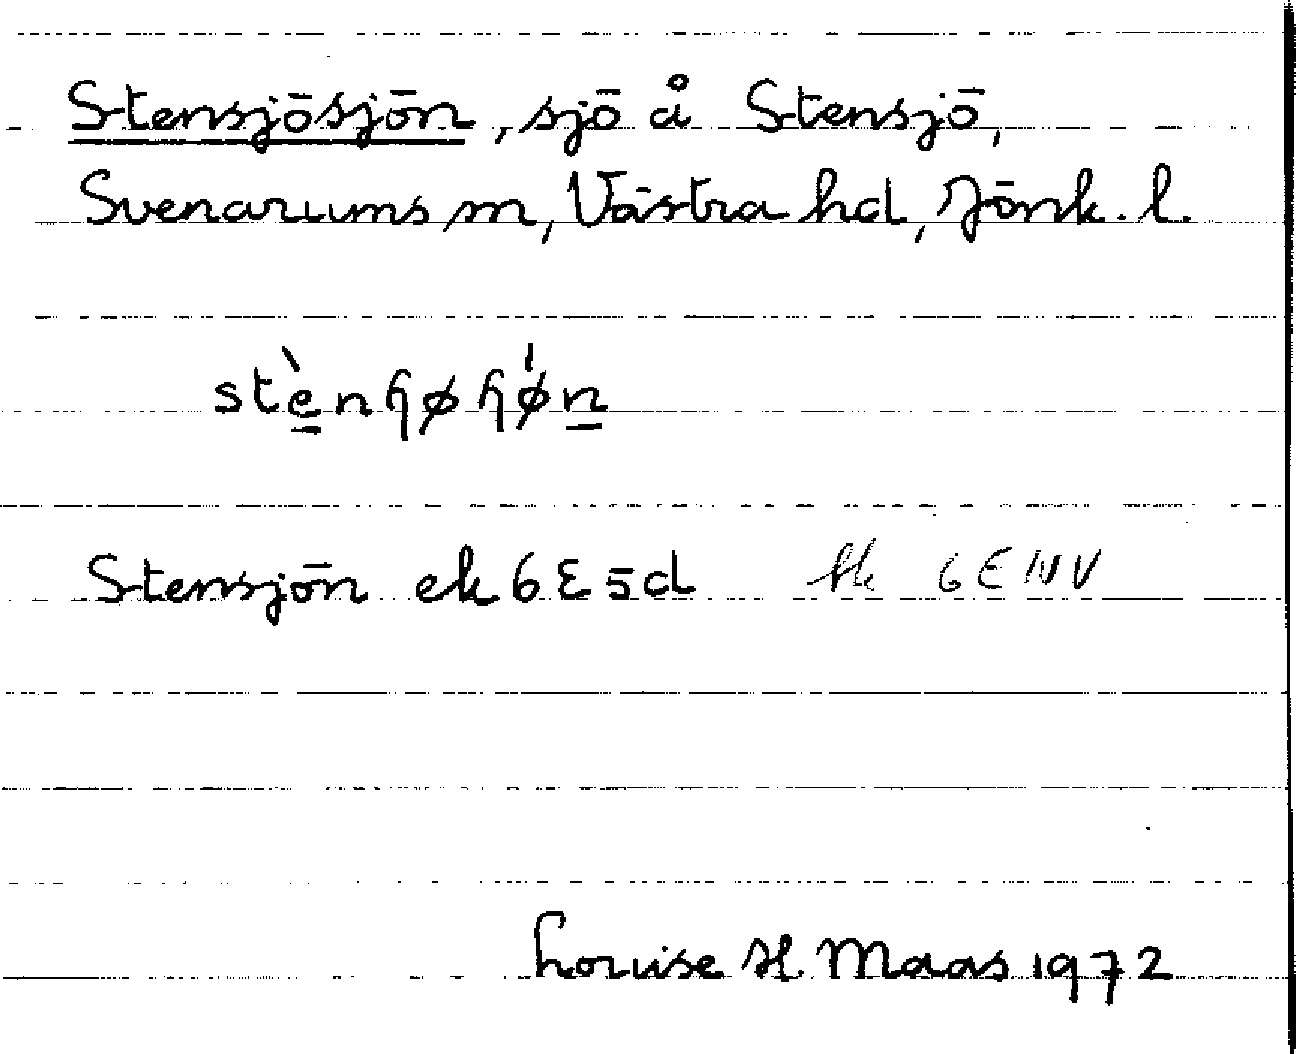 Stensjösjön, sjö å Stensjö,
Svenarums sn, Västra hd, Jönk. l.
stè̲nɧøɧǿn̲
Stensjön ek 6 E 5 d hk 6 E NV
Louise H Maas 1972